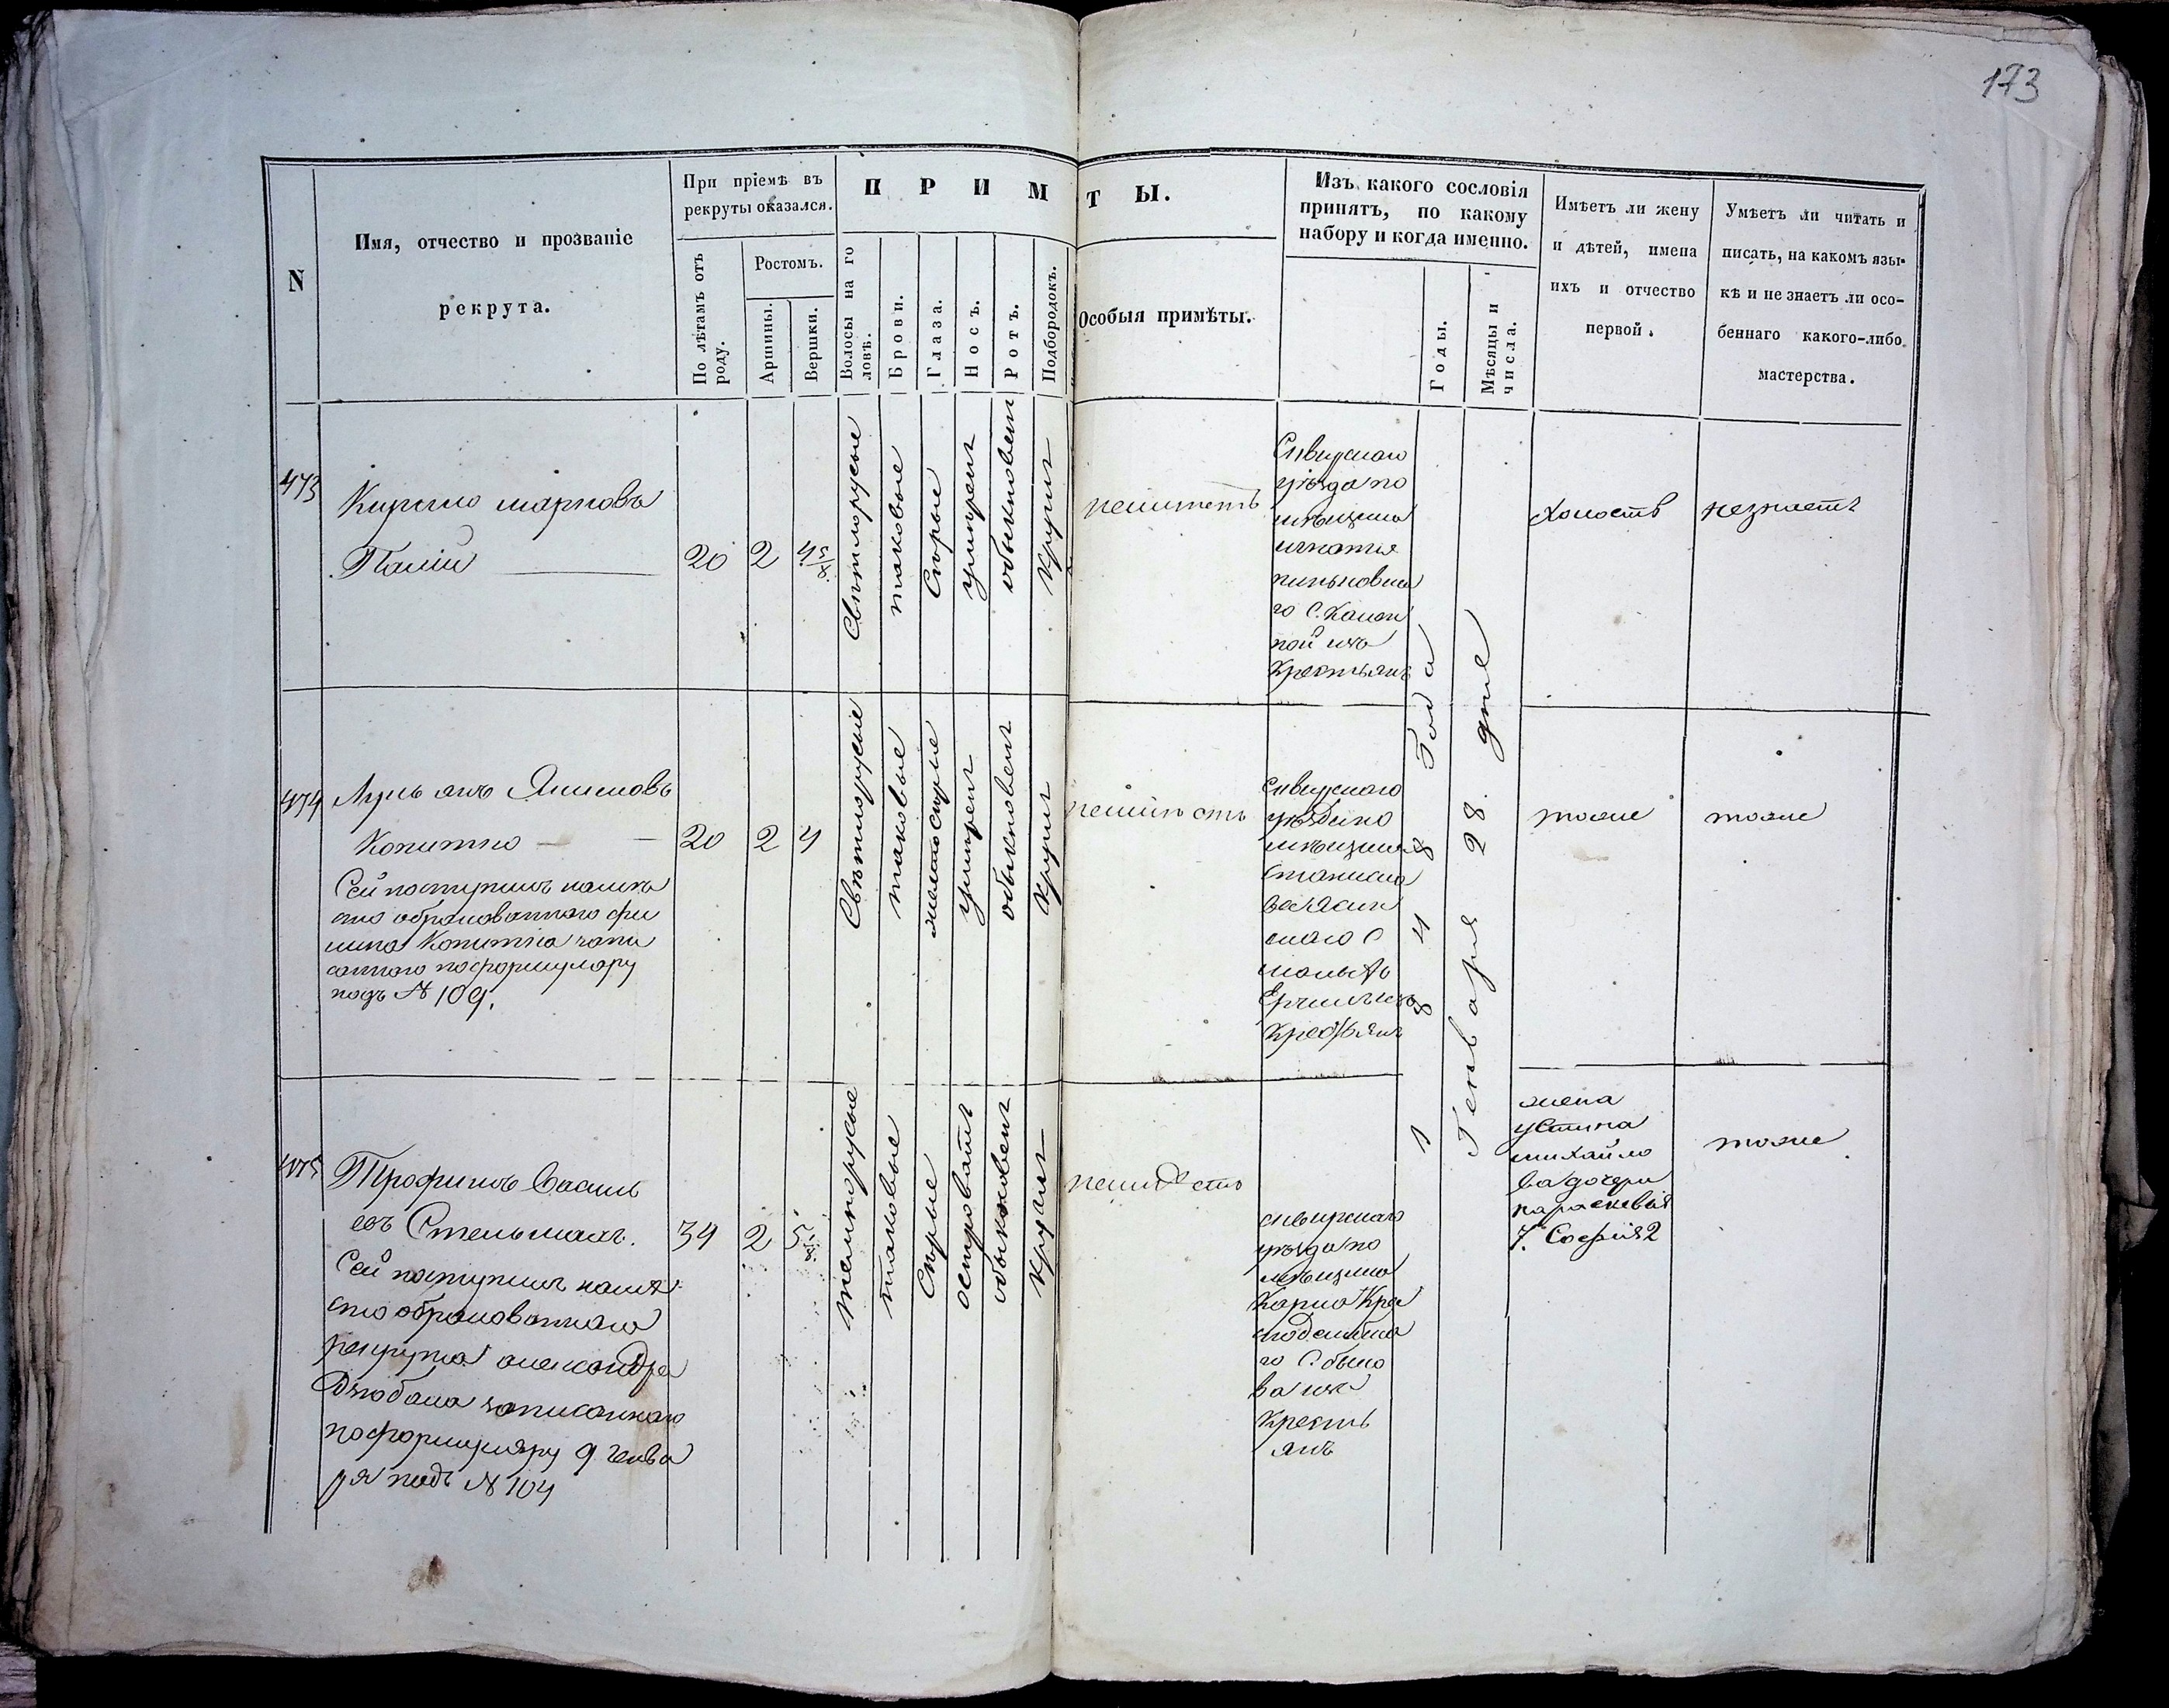 173
N
Имя, отчество и прозваніе
рекрута.
При пріемѣ въ
рекруты оказался.
По лѣтамъ отъ
роду.
Ростомъ.
Аршины.
Вершки.
П Р И М Т Ы.
Волосы на го
ловѣ.
Брови.
Глаза.
Носъ.
Ротъ.
Подбородокъ.
Особыя примѣты.
Изъ какого сословія
принятъ, по какому
набору и когда именно.
Годы.
Мѣсяцы и
числа.
Имѣетъ ли жену
и дѣтей, имена
ихъ и отчество
первой.
Умѣетъ ли читать и
писать, на какомъ язы-
кѣ и не знаетъ ли осо-
беннаго какого-либо
мастерства.
473
Кирило марковъ
Палій
20
2
4 5/8
Свѣтлорусые
таковые
Сѣрые
умѣрен
обыкновен
Кругил
неимѣетъ
Сквирскаго
уѣзда по
мѣщика
игнатія
го С. Камен
ной изъ
Крестьянъ
холостъ
незнаетъ
474
Лукьянъ Якимовъ
Копитко
20
2
4
Сей поступилъ намѣ
сто обракованнаго фи
липа Копитка запи
саннаго поформуляру
подъ № 109.
Свѣтлорусые
таковые
желтосѣрые
умѣрен
обыкновен
Кругил
неимѣетъ
Сквирскаго
уѣзда по
мѣщика
станисла
скаго С
малыхъ
Крестьянъ
тоже
тоже
1848 Года
Генваря 28. дня
475
Трофимъ Василь
евъ Стельмахъ.
34
2
5 5/8
Сей поступилъ намѣ
сто обракованнаго
рекрута александра
Дзюбана записаннаго
поформуляру 9 генва
ря подъ № 104
темнорусые
таковые
Сѣрые
островатъ
обыкновен
Кругил
неимѣетъ
сквирскаго
уѣзда по
мѣщика
Карла
го С. было
ва изъ
Кресть
янъ
жена
устина
михайло
ва дочери
параскевія
7. Софія 2
тоже